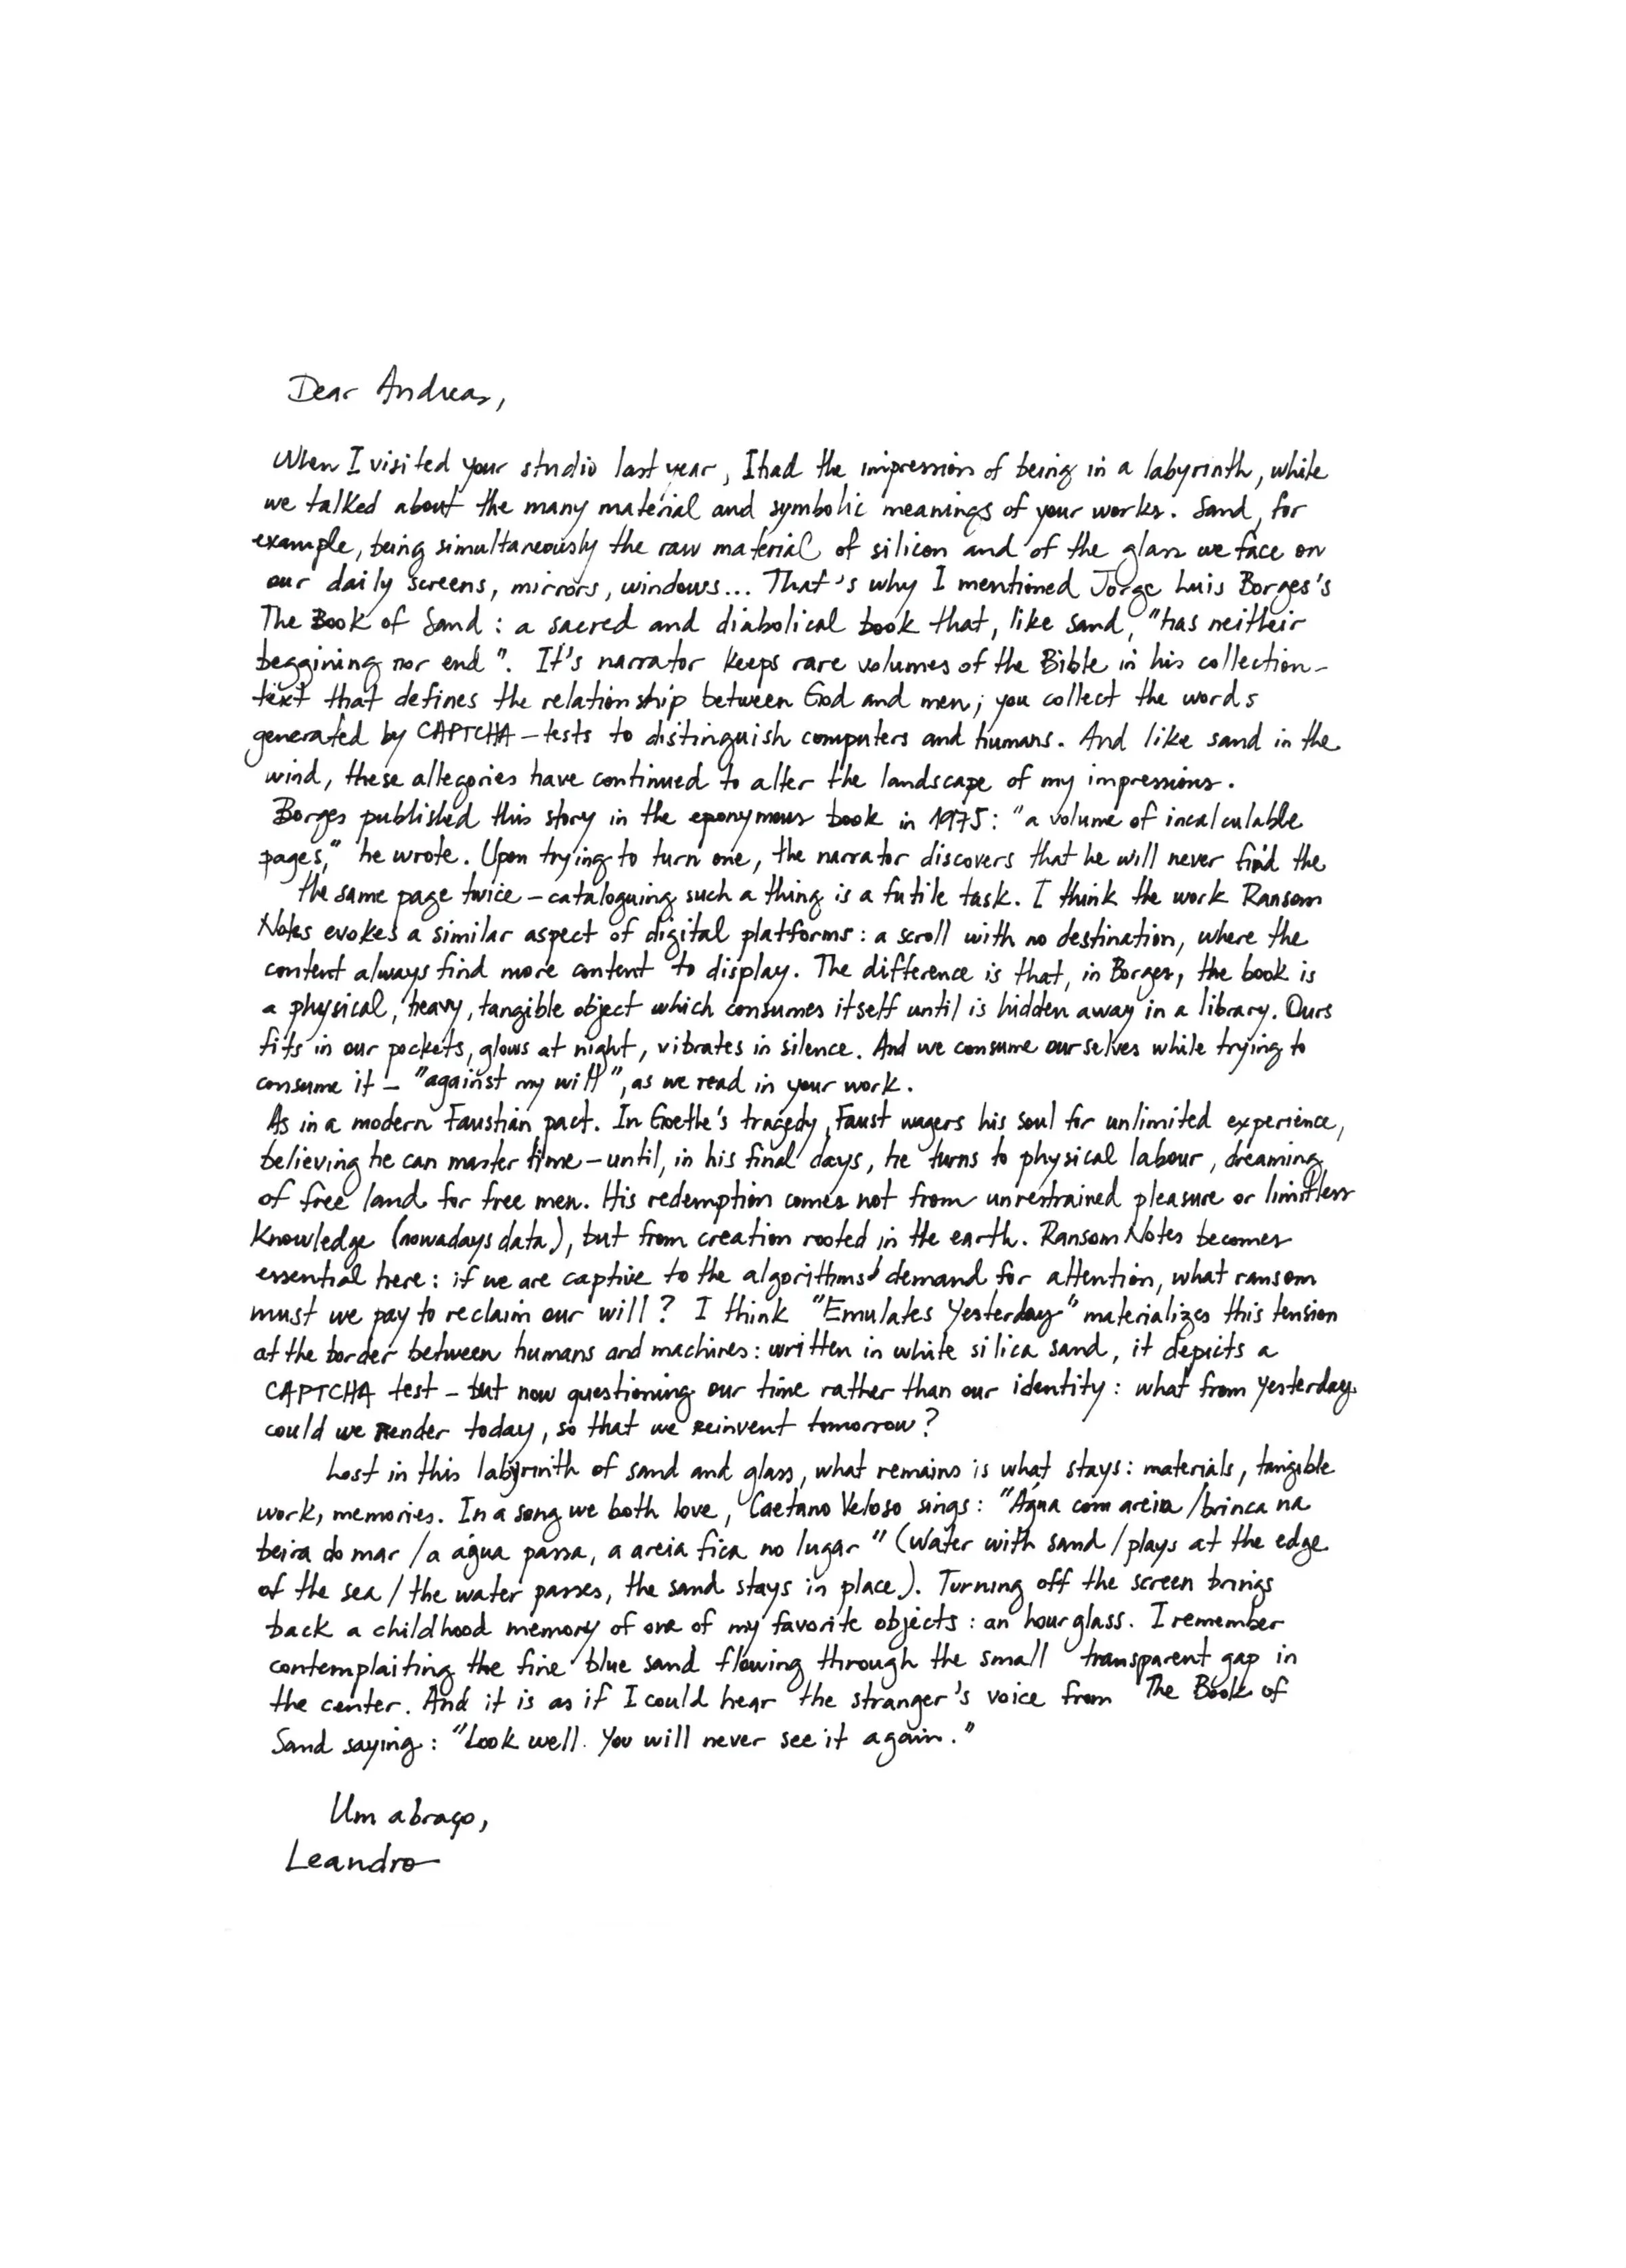 Dear Andreas,
When I visited your studio last year, I had the impression of being in a labyrinth, while
we talked about the many material and symbolic meanings of your works. Sand, for
example, being simultaneously the raw material of silicon and of the glass we face on
our daily screens, mirrors, windows... That's why I mentioned Jorge Luis Borges's
The Book of Sand: a sacred and diabolical book that, like sand, "has neitheir
beggining nor end". It's narrator keeps rare volumes of the Bible in his collection-
text that defines the relationship between God and men; you collect the words
generated by CAPTCHA – tests to distinguish computers and humans. And like sand in the
wind, these allegories have continued to alter the landscape of my impressions.
Borges published this story in the eponymous book in 1975: "a volume of incalculable
pages," he wrote. Upon trying to turn one, the narrator discovers that he will never find the
the same page twice – cataloguing such a thing is a futile task. I think the work Ransom
Notes evokes a similar aspect of digital platforms: a scroll with no destination, where the
content always find more content to display. The difference is that, in Borges, the book is
a physical, heavy, tangible object which consumes itself until is hidden away in a library. Ours
fits in our pockets, glows at night, vibrates in silence. And we consume ourselves while trying to
consume it – "against my will", as we read in your work.
As in a modern Faustian pact. In Goethe's tragedy, Faust wagers his soul for unlimited experience,
believing he can master time – until, in his final days, he turns to physical labour, dreaming
of free land for free men. His redemption comes not from unrestrained pleasure or limitless
knowledge (nowadays data), but from creation rooted in the earth. Ransom Notes becomes
essential here: if we are captive to the algorithms' demand for attention, what ransom
must we pay to reclaim our will? I think "Emulates Yesterday" materializes this tension
at the border between humans and machines: written in white silica sand, it depicts a
CAPTCHA test – but now questioning our time rather than our identity: what from yesterday
could we render today, so that we reinvent tomorrow?
Lost in this labyrinth of sand and glass, what remains is what stays: materials, tangible
work, memories. In a song we both love, Caetano Veloso sings: "Água com areia / brinca na
beira do mar / a água passa, a areia fica no lugar" (Water with sand / plays at the edge
of the sea / the water passes, the sand stays in place). Turning off the screen brings
back a childhood memory of one of my favorite objects: an hourglass. I remember
contemplaiting the fine blue sand flowing through the small transparent gap in
the center. And it is as if I could hear the stranger's voice from The Book of
Sand saying: "Look well. You will never see it again."
Um abraço,
Leandro